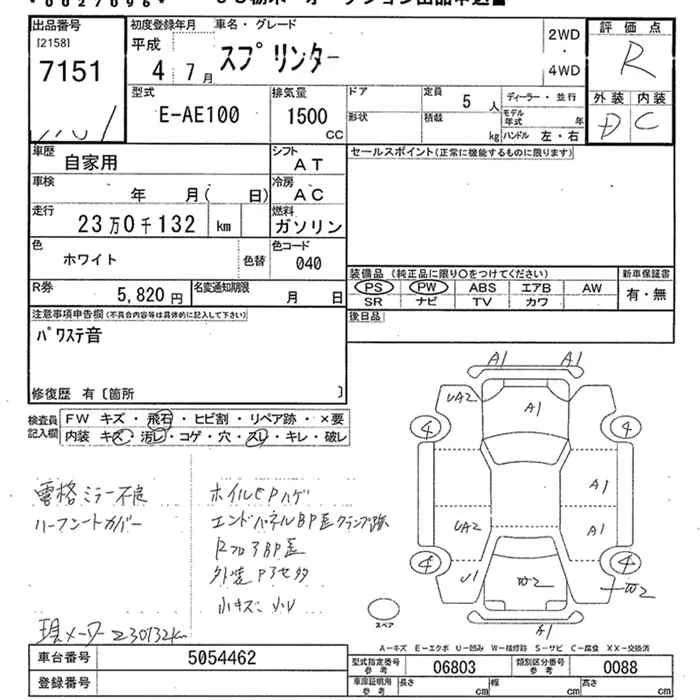 出品番号
[2158]
7151
初度登録年月
平成
4 7月
車名・グレード
スプリンター
2WD
・
4WD
評価点
R
外装 内装
D C
型式
E-AE100
排気量
1500
CC
ドア
形状
定員
5 人
積載
kg
ディーラー・並行
モデル年式 年
ハンドル 左・右
車歴
自家用
シフト
AT
車検
年 月( 日)
冷房
AC
走行
23万0千132 km
燃料
ガソリン
色
ホワイト
色替
色コード
040
R券
5,820円
名変通知期限
月 日
セールスポイント(正常に機能するものに限ります)
装備品 (純正品に限り○をつけてください)
PS PW ABS エアB AW
SR ナビ TV カワ
新車保証書
有・無
後日品
注意事項申告欄(不具合内容等は具体的に記入して下さい)
パワステ音
修復歴 有〔箇所 〕
検査員記入欄
FW キズ・飛石・ヒビ割・リペア跡・×要
内装 キズ・汚レ・コゲ・穴・スレ・キレ・破レ
電格ミラー不良
ハーフシートカバー
ホイルCPハゲ
エンドパネルBP歪クランプ跡
RフロアBP歪
小キズ 小U
現メーター230132km
A1 A1
UA2 A1
4 4
A1
UA2 A1
4 4
U1 W2 W2
A1
スペア
A-キズ E-エクボ U-凹み W-補修跡 S-サビ C-腐食 XX-交換済
車台番号
5054462
登録番号
型式指定番号
参考
06803
類別区分番号
参考
0088
車庫証明用
参考
長さ cm
幅 cm
高さ cm